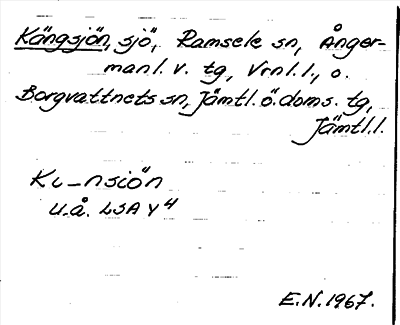 Kängsjön, sjö, Ramsele sn, Ånger-
manl. v. tg, Vrnl.l., o.
Borgvattnets sn, Jämtl. ö. doms. tg,
Jämtl.l.
Kc_nsiön
u.å. LSA Y4
E.N. 1967.